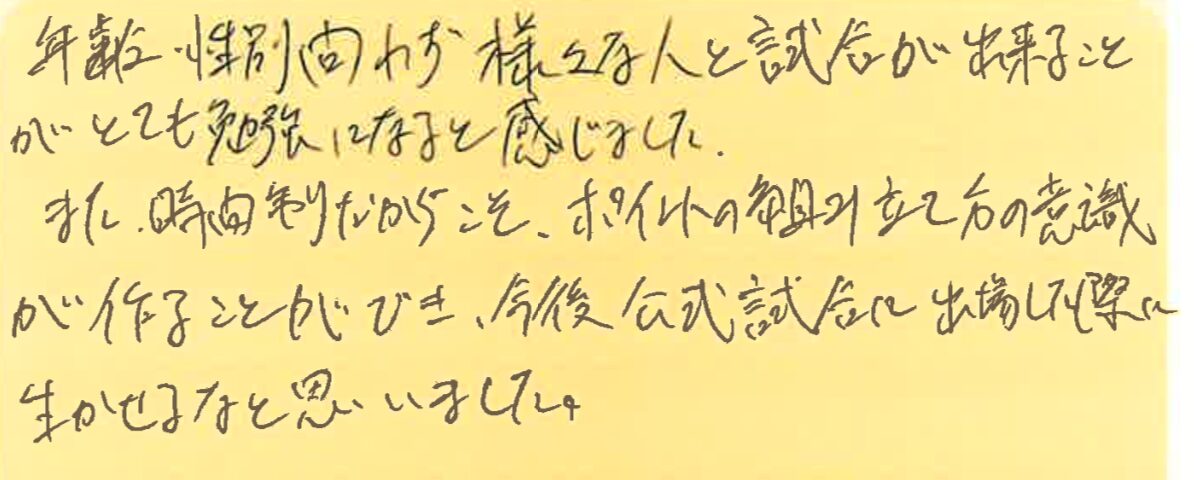 年齢・性別問わず様々な人と試合が出来ること
がとても勉強になると感じました.
また、時間制だからこそ、ポイントの組み立て方の意識
が作ることができ、今後公式試合に出場した際に
生かせるなと思いました。